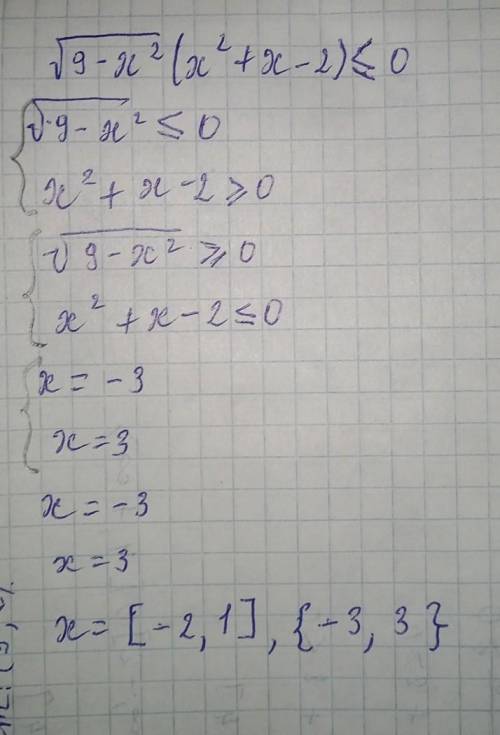 √9-x² (x²+x-2)≤0
√9-x² ≤ 0
x²+x-2≥0
√9-x² ≥0
x²+x-2≤0
x=-3
x=3
x=-3
x=3
x=[-2,1],{-3,3}